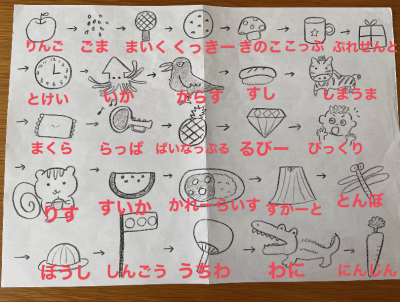 りんご ごま まいく くっきー きのこ こっぷ ぷれぜんと
とけい いか からす すし しまうま
まくら らっぱ ぱいなっぷる るびー びっくり
りす すいか かれーらいす すかーと とんぼ
ぼうし しんごう うちわ わに にんじん